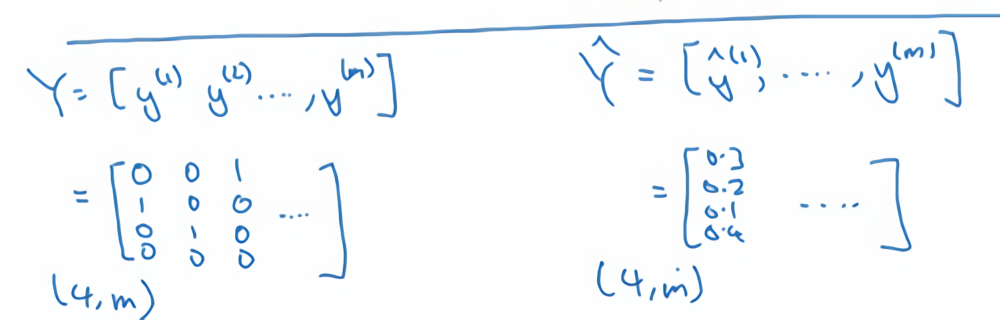 Y = [ y^(1) y^(2) ...., y^(m) ]
= [ 0 0 1
1 0 0 ....
0 1 0
0 0 0 ]
(4, m)
Ŷ = [ ŷ^(1), ...., y^(m) ]
= [ 0.3
0.2
0.1 ....
0.4 ]
(4, m)